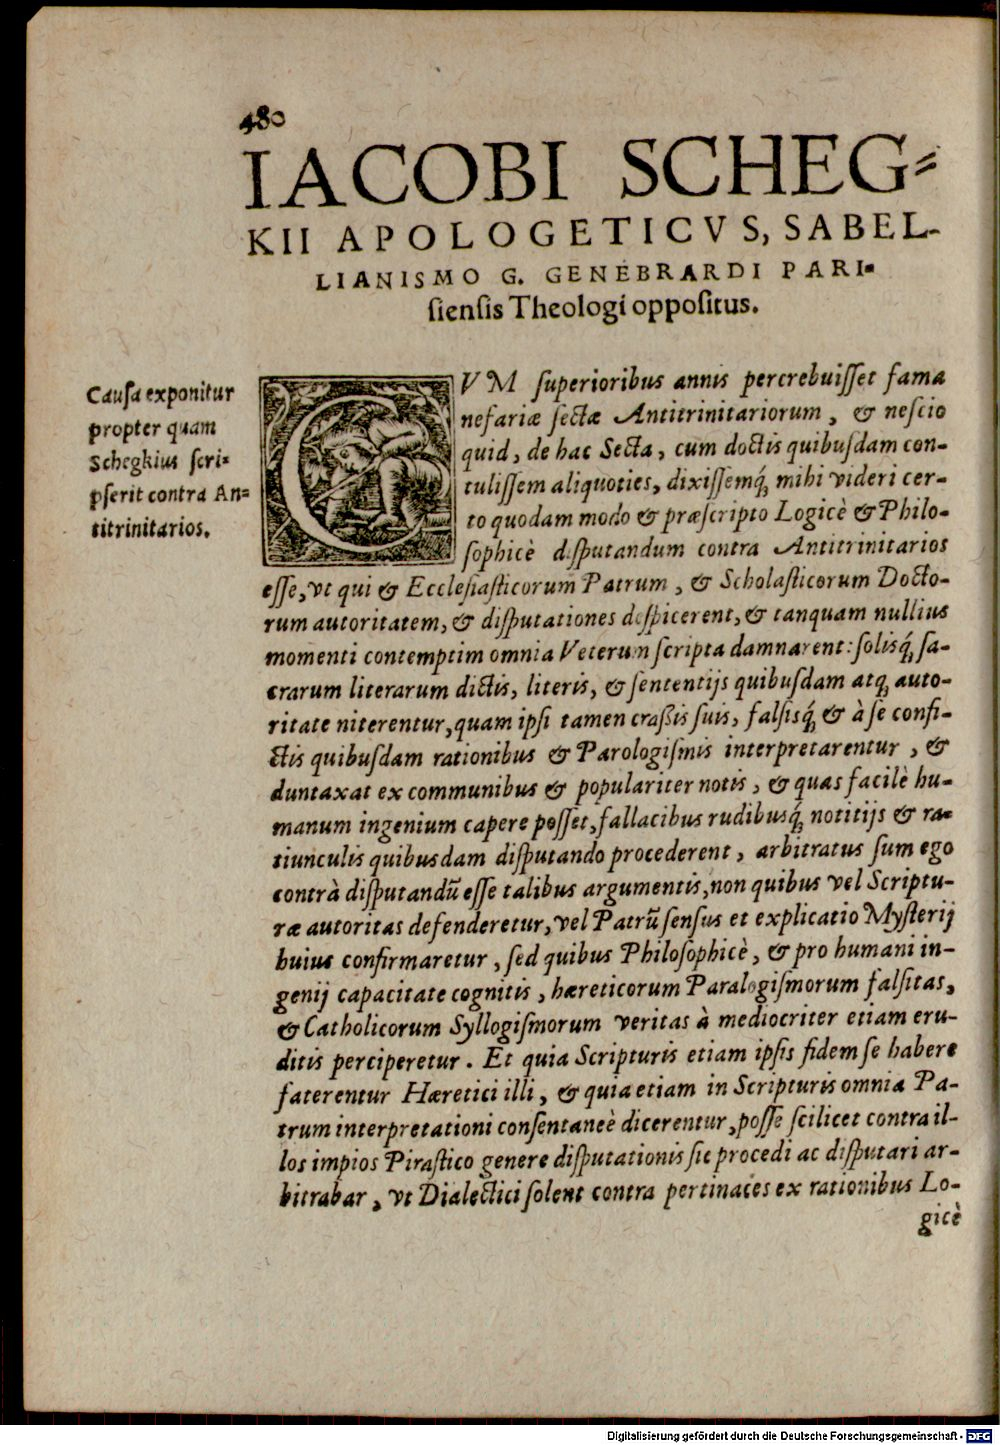 480
IACOBI SCHEG-
KII APOLOGETICVS, SABEL-
LIANISMO G. GENEBRARDI PARI-
siensis Theologi oppositus.
Causa exponitur
propter quam
Schegkius scri-
pserit contra An-
titrinitarios.
CVM superioribus annis percrebuisset fama
nefariæ sectæ Antitrinitariorum, & nescio
quid, de hac Secta, cum doctis quibusdam con-
tulissem aliquoties, dixissemq́; mihi videri cer-
to quodam modo & præscripto Logicè & Philo-
sophicè disputandum contra Antitrinitarios
esse, vt qui & Ecclesiasticorum Patrum, & Scholasticorum Docto-
rum autoritatem, & disputationes despicerent, & tanquam nullius
momenti contemptim omnia Veterum scripta damnarent: solisq́; sa-
crarum literarum dictis, literis, & sententijs quibusdam atq; auto-
ritate niterentur, quam ipsi tamen crassis suis, falsisq́; & à se confi-
ctis quibusdam rationibus & Parologismis interpretarentur, &
duntaxat ex communibus & populariter notis, & quas facilè hu-
manum ingenium capere posset, fallacibus rudibusq́; notitijs & ra-
tiunculis quibusdam disputando procederent, arbitratus sum ego
contrà disputandũ esse talibus argumentis, non quibus vel Scriptu-
ræ autoritas defenderetur, vel Patrũ sensus et explicatio Mysterij
huius confirmaretur, sed quibus Philosophicè, & pro humani in-
genij capacitate cognitis, hæreticorum Paralogismorum falsitas,
& Catholicorum Syllogismorum veritas à mediocriter etiam eru-
ditis perciperetur. Et quia Scripturis etiam ipsis fidem se habere
faterentur Hæretici illi, & quia etiam in Scripturis omnia Pa-
trum interpretationi consentaneè dicerentur, posse scilicet contra il-
los impios Pirastico genere disputationis sic procedi ac disputari ar-
bitrabar, vt Dialectici solent contra pertinaces ex rationibus Lo-
gicè
Digitalisierung gefördert durch die Deutsche Forschungsgemeinschaft - DFG